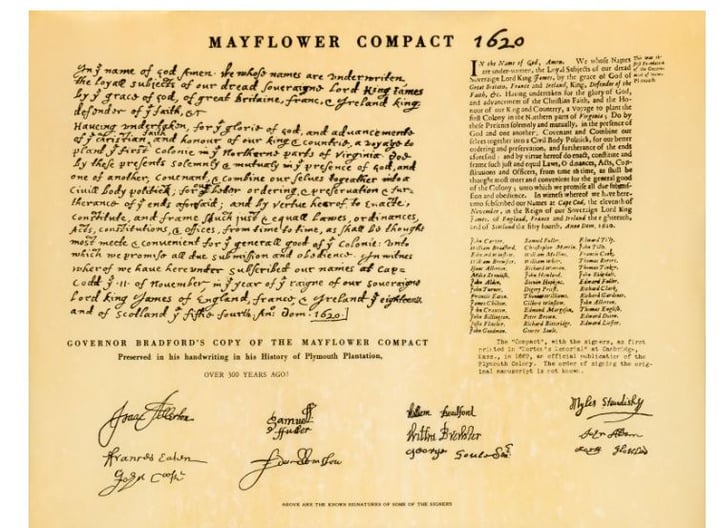 MAYFLOWER COMPACT 1620
In yͤ name of god Amen. We whose names are underwriten,
the loyall subjects of our dread soveraigne Lord King James
by yͤ grace of god, of great Britaine, franc, & Ireland king,
defender of yͤ faith, &c
Haveing undertaken, for yͤ glorie of god, and advancemente
of yͤ christian faith and honour of our king & countrie, a voyage to
plant yͤ first colonie in yͤ Northerne parts of Virginia. Doe
by these presents solemnly & mutualy in yͤ presence of god, and
one of another, covenant, & combine our selves togeather into a
civill body politick; for yͬ better ordering, & preservation & fur-
therance of yͤ ends aforesaid; and by vertue hearof to enacte,
constitute, and frame such just & equall lawes, ordinances,
Acts, constitutions, & offices, from time to time, as shall be thought
most meete & convenient for yͤ generall good of yͤ Colonie: unto
which we promise all due submission and obedience. In witnes
wherof we have hereunder subscribed our names at Cap=
Codd yͤ .11. of November, in yͤ year of yͤ raigne of our soveraigne
Lord king James of England, franc, & Ireland yͤ eighteenth
and of Scotland yͤ fiftie fourth. Ano: Dom. 1620.]
GOVERNOR BRADFORD'S COPY OF THE MAYFLOWER COMPACT
Preserved in his handwriting in his History of Plymouth Plantation,
OVER 300 YEARS AGO!
IN the Name of God, Amen. We whose Names
are under-written, the Loyal Subjects of our dread
Sovereign Lord King James, by the grace of God of
Great Britain, France and Ireland, King, Defender of the
Faith, &c. Having undertaken for the glory of God,
and advancement of the Christian Faith, and the Ho-
nour of our King and Countrey, a Voyage to plant the
first Colony in the Northern parts of Virginia; Do by
these Presents solemnly and mutually, in the presence of
God and one another, Covenant and Combine our
selves together into a Civil Body Politick, for our better
ordering and preservation, and furtherance of the ends
aforesaid: and by virtue hereof do enact, constitute and
frame such just and equal Laws, Ordinances, Acts, Con-
stitutions and Officers, from time to time, as shall be
thought most meet and convenient for the general good
of the Colony; unto which we promise all due submis-
sion and obedience. In witness whereof we have here-
unto subscribed our Names at Cape Cod, the eleventh of
November, in the Reign of our Sovereign Lord King
James, of England, France and Ireland the eighteenth
and of Scotland the fifty fourth, Anno Dom. 1620.
John Carver, Samuel Fuller, Edward Tilly,
William Bradford, Christopher Martin, John Tilly,
Edward Winslow, William Mullins, Francis Cook,
William Brewster, William White, Thomas Rogers,
Isaac Allerton, Richard Warren, Thomas Tinker,
Miles Standish, John Howland, John Ridgdale,
John Alden, Steven Hopkins, Edward Fuller,
John Turner, Digery Priest, Richard Clark,
Francis Eaton, Thomas Williams, Richard Gardiner,
James Chilton, Gilbert Winslow, John Allerton,
John Craxton, Edmund Margeson, Thomas English,
John Billington, Peter Brown, Edward Doten,
Richard Bitteridge, Edward Liester.
John Goodman, George Soule,
The "Compact", with the signers, as first
printed in "Morton's Memorial" at Cambridge,
Mass., in 1669, an official publication of the
Plymouth Colony. The order of signing the orig-
inal manuscript is not known.
Isaac Allerton
Samuel
Fuller
William Bradford
Myles Standish
Willm Brewster
John Alden
Francis Eaton
George Soule
John Cooke
ABOVE ARE THE KNOWN SIGNATURES OF SOME OF THE SIGNERS